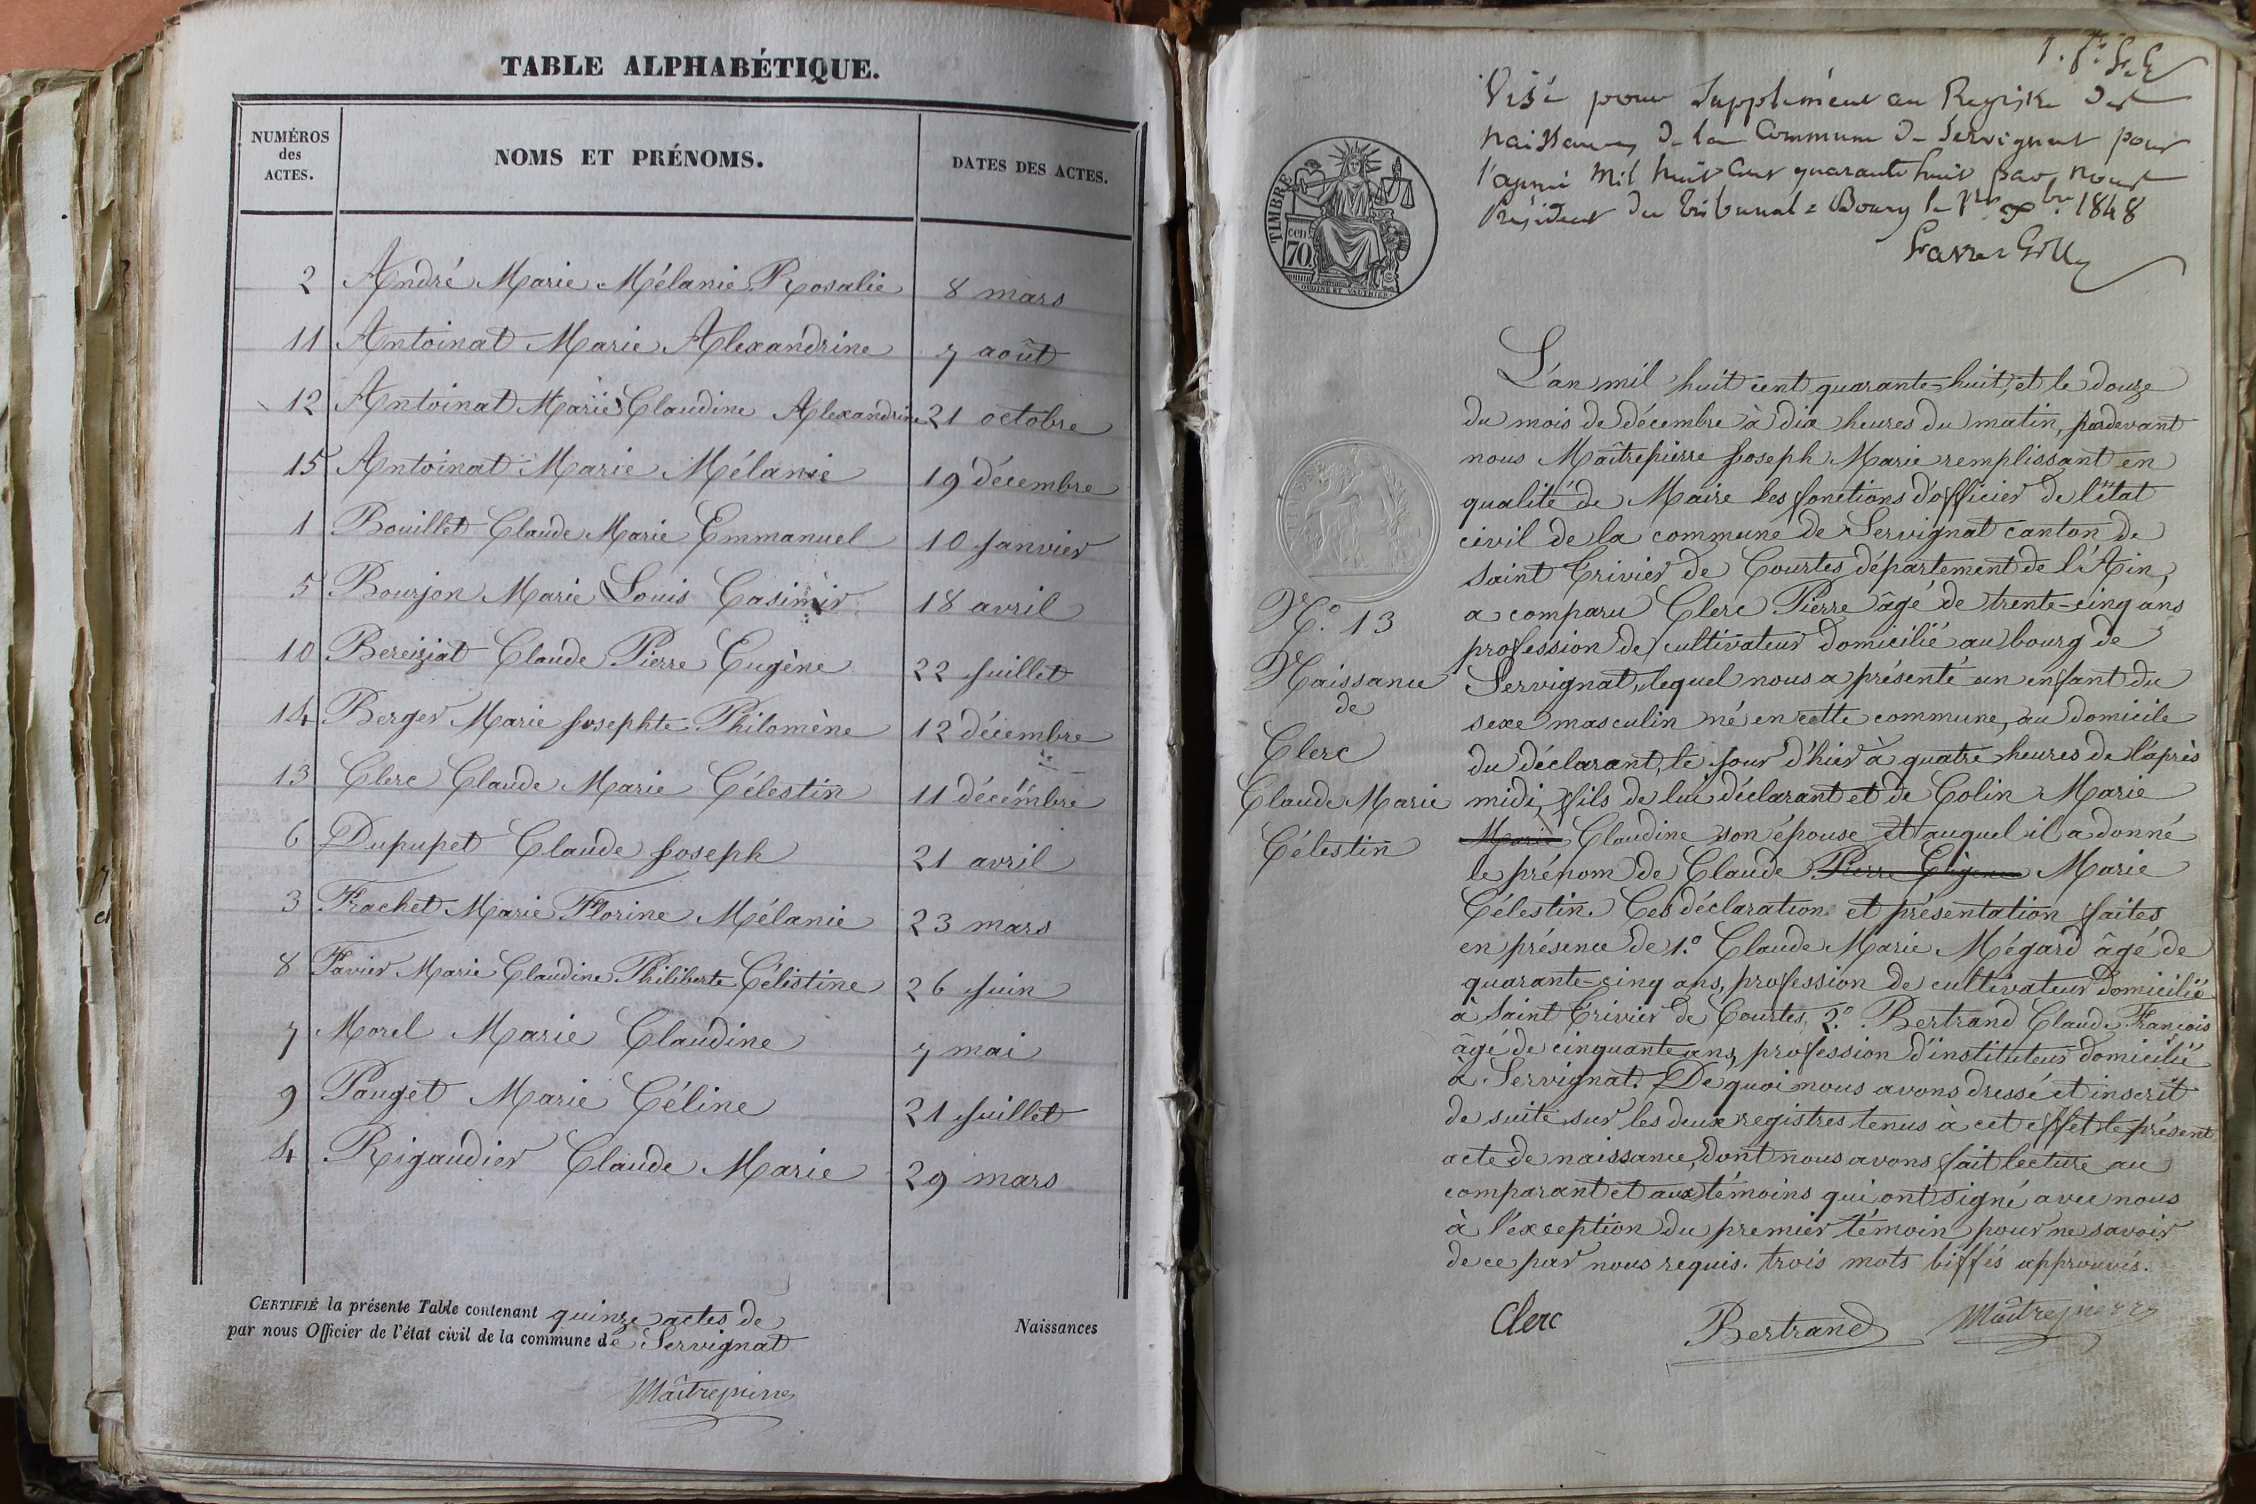 TABLE ALPHABÉTIQUE.
NUMÉROS
des
ACTES.
NOMS ET PRÉNOMS.
DATES DES ACTES.
2 André Marie Mélanie Rosalie 8 mars
11 Antoinat Marie Alexandrine 7 août
12 Antoinat Marie Claudine Alexandrine 21 octobre
15 Antoinat Marie Mélanie 19 décembre
1 Bouillet Claude Marie Emmanuel 10 Janvier
5 Bourjon Marie Louis Casimir 18 avril
10 Bereiziat Claude Pierre Eugène 22 Juillet
14 Berger Marie Josephte Philomène 12 décembre
13 Clerc Claude Marie Célestin 11 décembre
6 Dupupet Claude Joseph 21 avril
3 Frachet Marie Florine Mélanie 23 mars
8 Favier Marie Claudine Philiberte Célestine 26 Juin
7 Morel Marie Claudine 7 mai
9 Pauget Marie Céline 21 Juillet
4 Rigaudier Claude Marie 29 mars
CERTIFIÉ la présente Table contenant quinze actes de Naissances
par nous Officier de l'état civil de la commune de Servignat
Maîtrepierre
Visé pour Supplément au Registre des
naissances de la Commune de Servignat pour
l'année Mil huit Cent quarante huit par nous
Président du tribunal à Bourg le 1848
TIMBRE
70 cen
OUDINÉ ET VAUTHIER
N.° 13
Naissance
de
Clerc
Claude Marie
Célestin
L'an mil huit cent quarante-huit, et le douze
du mois de décembre à dix heures du matin, pardevant
nous Maîtrepierre Joseph Marie remplissant en
qualité de Maire les fonctions d'officier de l'état
civil de la commune de Servignat canton de
Saint Trivier de Courtes département de l'Ain,
a comparu Clerc Pierre âgé de trente-cinq ans
profession de cultivateur domicilié au bourg de
Servignat, lequel nous a présenté un enfant du
sexe masculin né en cette commune, au domicile
du déclarant, le jour d'hier à quatre heures de l'après
midi, fils de lui déclarant et de Colin Marie
Marie Claudine son épouse et auquel il a donné
le prénom de Claude Pierre Eugène Marie
Célestin. Ces déclaration et présentation faites
en présence de 1.° Claude Marie Mégard âgé de
quarante-cinq ans, profession de cultivateur domicilié
à Saint Trivier de Courtes, 2.° Bertrand Claude François
âgé de cinquante ans, profession d'instituteur domicilié
à Servignat. De quoi nous avons dressé et inscrit
de suite sur les deux registres tenus à cet effet le présent
acte de naissance, dont nous avons fait lecture au
comparant et aux témoins qui ont signé avec nous
à l'exception du premier témoin pour ne savoir
de ce par nous requis. trois mots biffés approuvés.
Clerc Bertrand Maîtrepierre